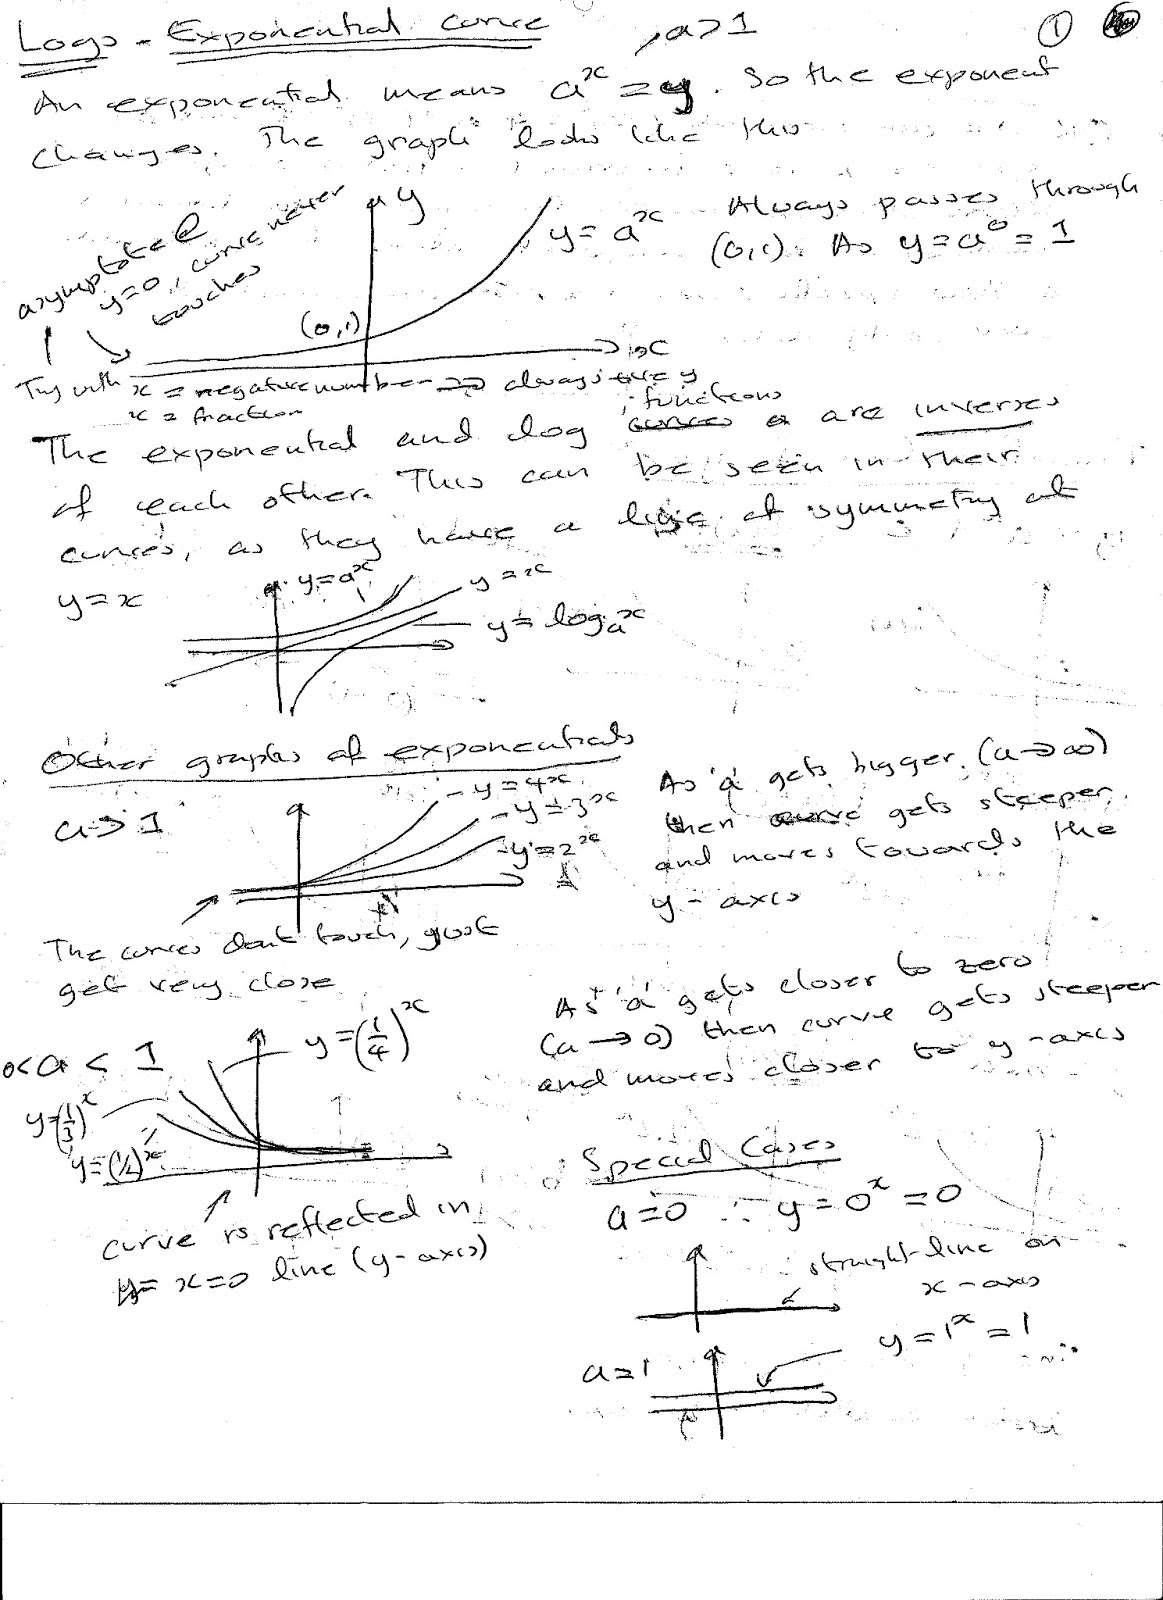 Logs - Exponential curve , a>1 ①
An exponential means aˣ = y. So the exponent
changes. The graph looks like this
asymptote @
y=0, curve never
touches
y
y = aˣ
(0,1)
x
Always passes through
(0,1). As y = a⁰ = 1
Try with x = negative number => always +ive y
x = fraction
The exponential and log functions are inverses
of each other. This can be seen in their
curves, as they have a line of symmetry at
y = x
y = aˣ
y = x
y = logₐx
Other graphs of exponentials
a → 1
y = 4ˣ
y = 3ˣ
y = 2ˣ
As 'a' gets bigger (a → ∞)
then curve gets steeper
and moves towards the
y - axis
The curves dont touch, just
get very close
0 < a < 1
y = (1/4)ˣ
y = (1/3)ˣ
y = (1/2)ˣ
As 'a' gets closer to zero
(a → 0) then curve gets steeper
and moves closer to y - axis
curve is reflected in
x = 0 line (y - axis)
Special Cases
a = 0 ∴ y = 0ˣ = 0
straight line on
x - axis
a = 1
y = 1ˣ = 1